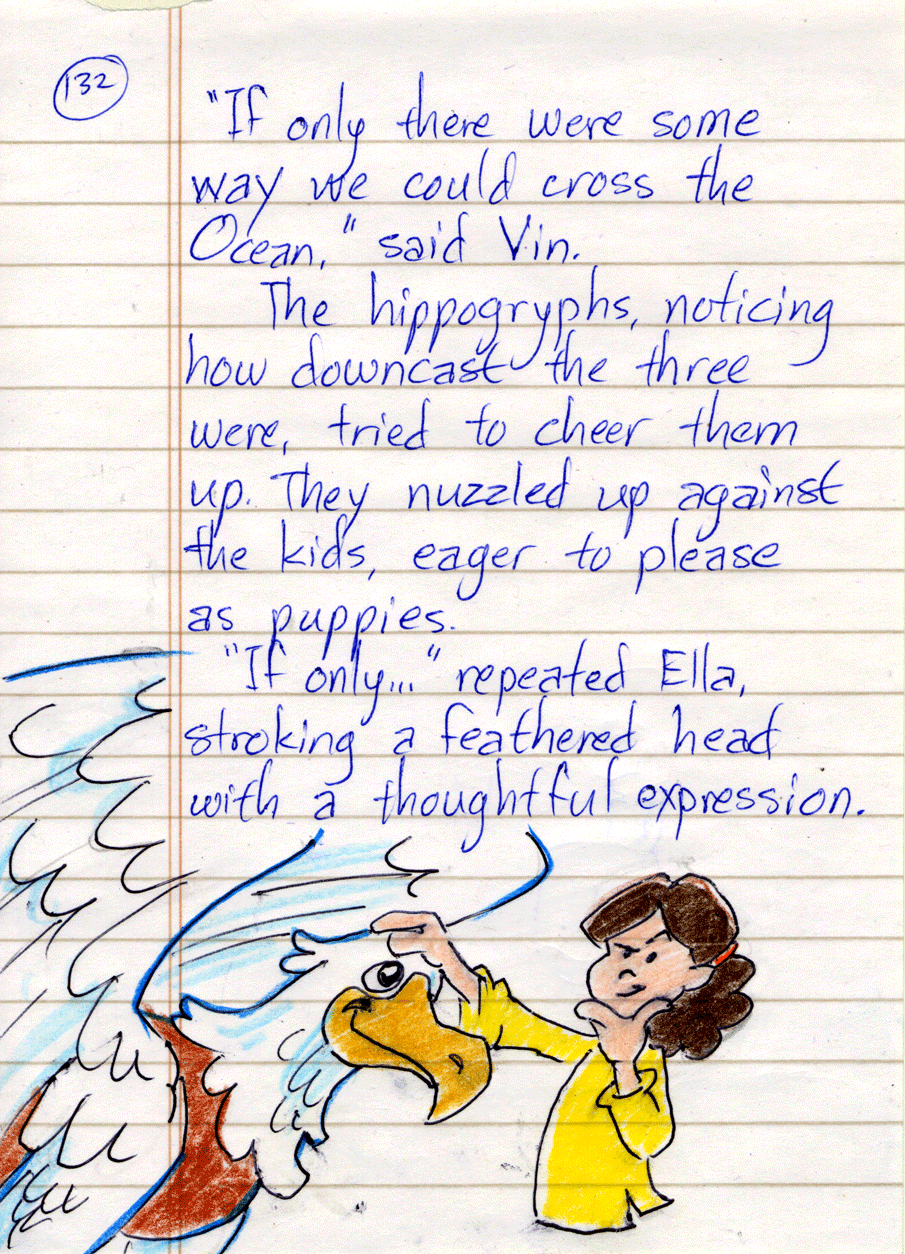 132
"If only there were some
way we could cross the
Ocean," said Vin.
The hippogryphs, noticing
how downcast the three
were, tried to cheer them
up. They nuzzled up against
the kids, eager to please
as puppies.
"If only..." repeated Ella,
stroking a feathered head
with a thoughtful expression.